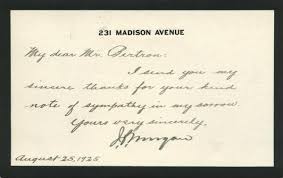 231 MADISON AVENUE
My dear Mr. Pertron:
I send you my
sincere thanks for your kind
note of sympathy in my sorrow
Yours very sincerely,
J.P. Morgan
August 25, 1925